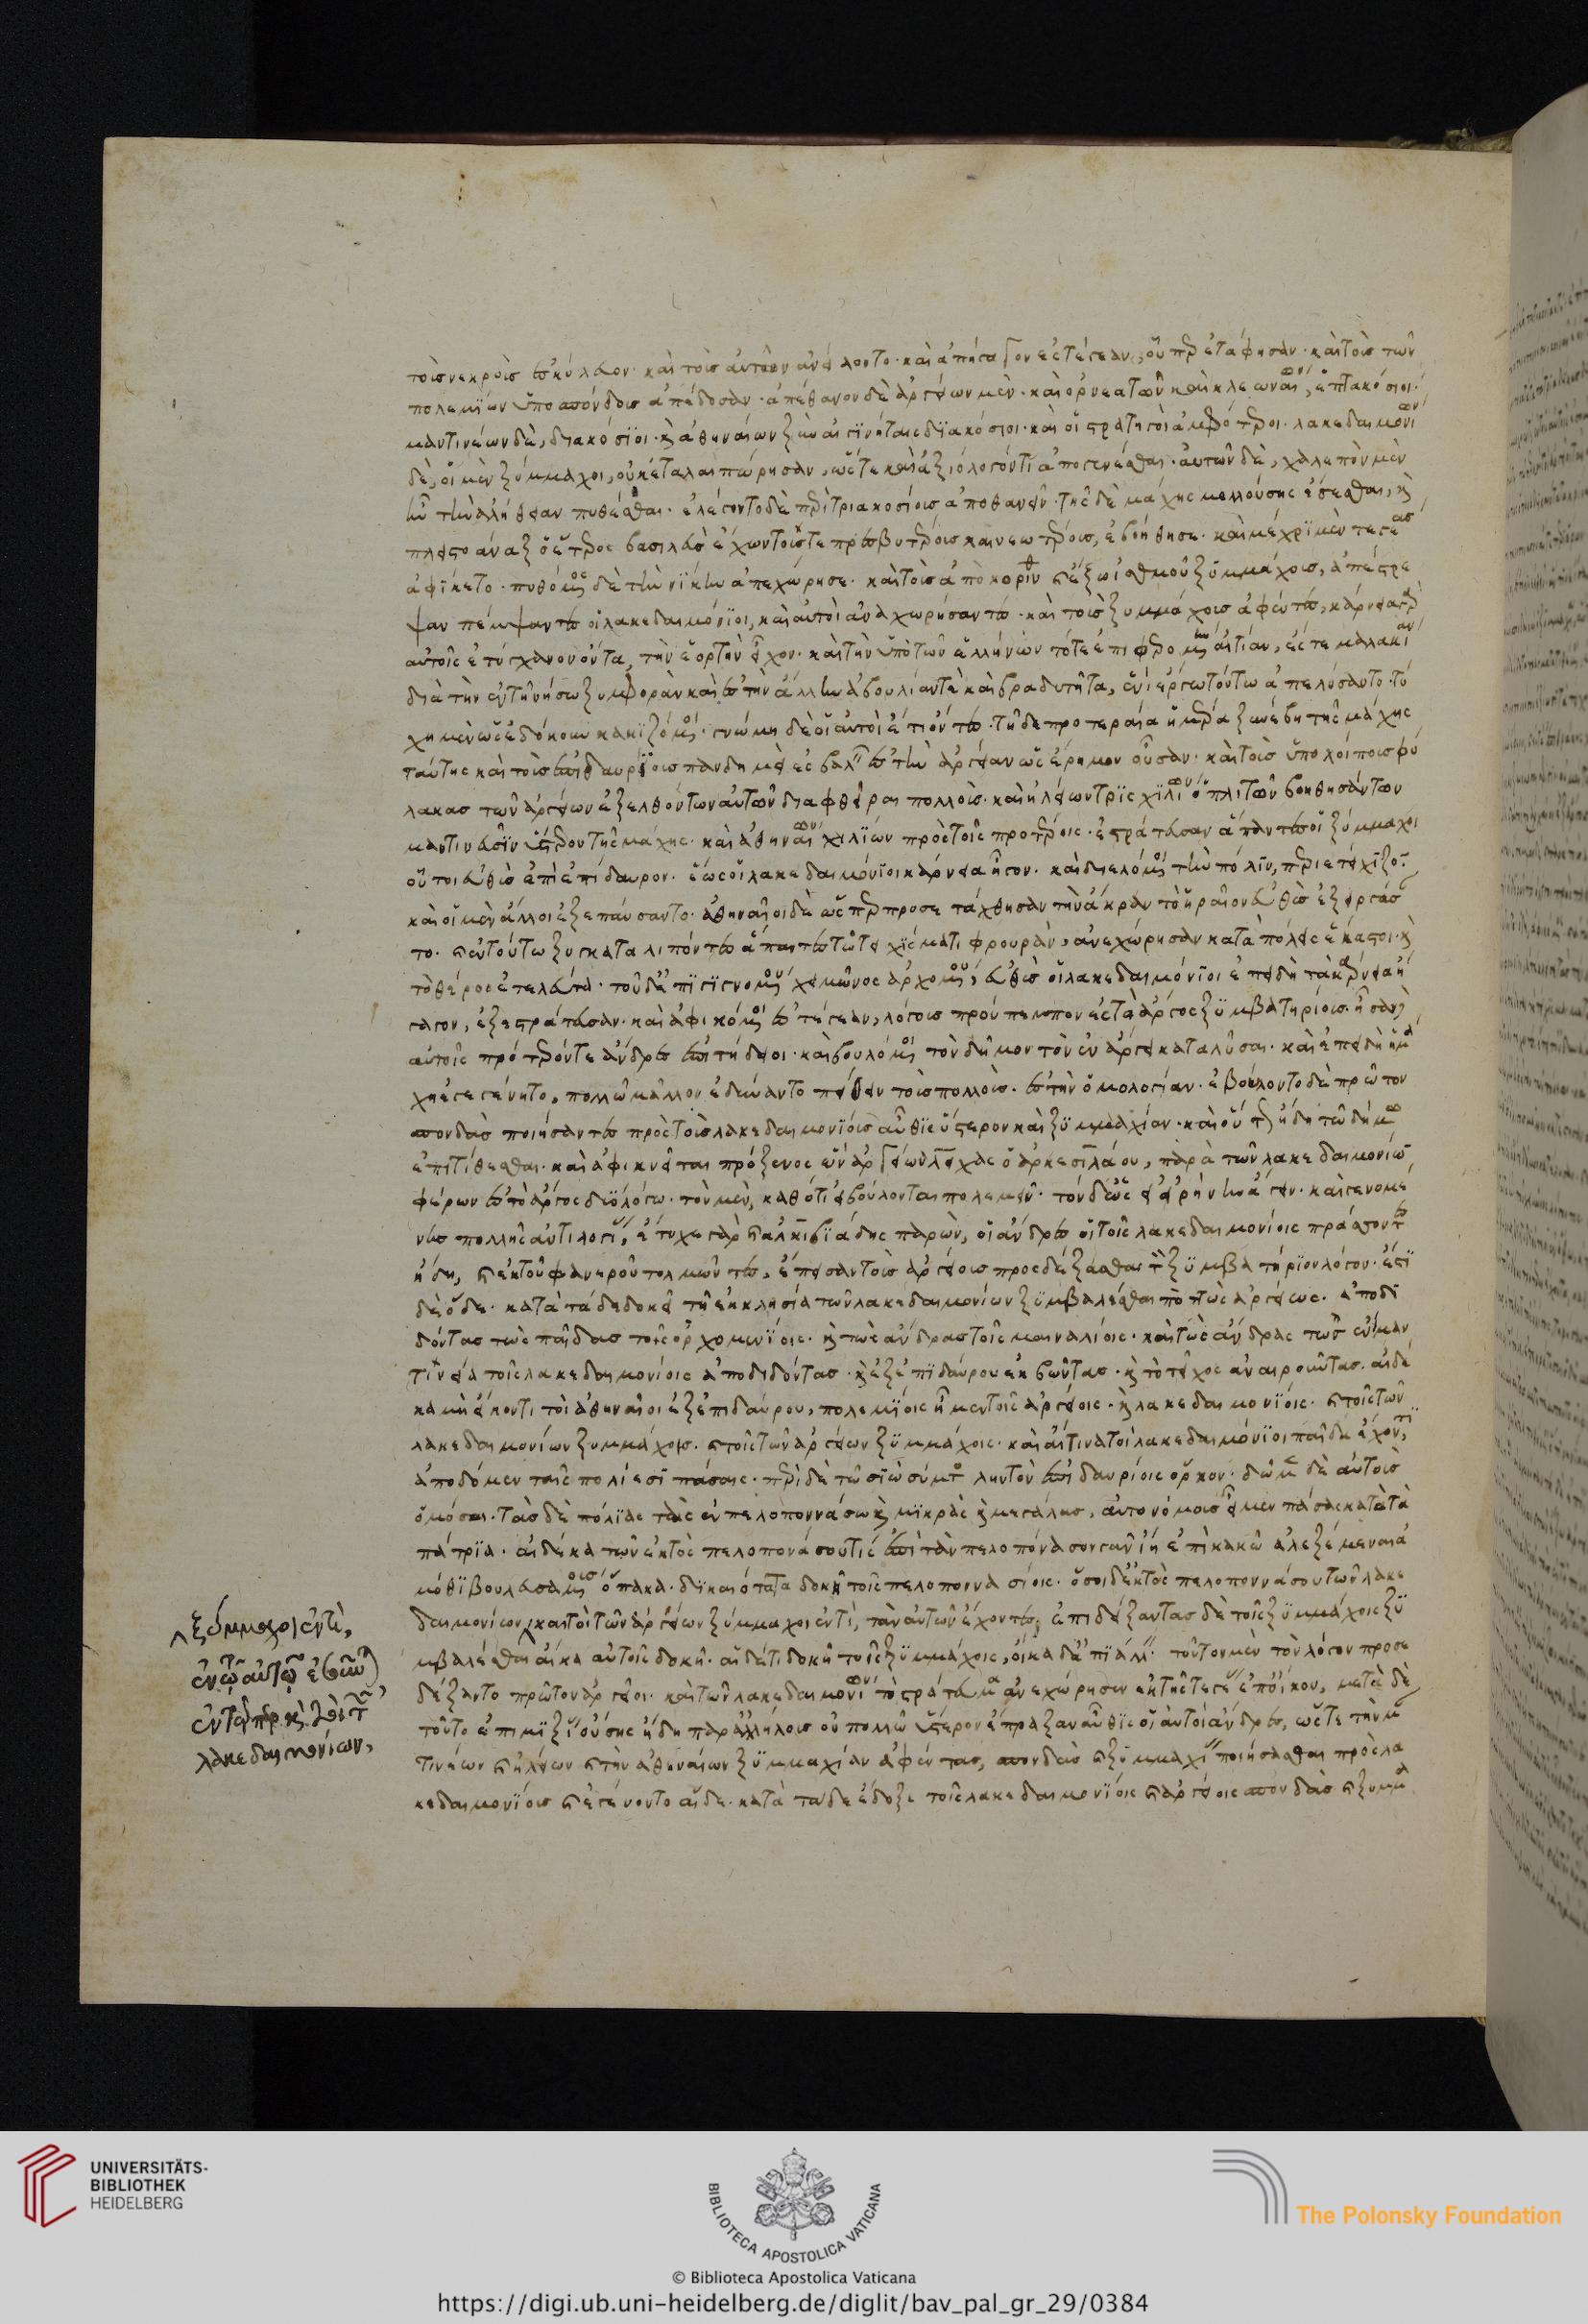 τοὺς νεκροὺς ἐσκύλευον· καὶ τοὺς αὑτῶν ἀνείλοντο· καὶ ἀπήγαγον ἐς τέγεαν, οὗπερ ἐτάφησαν· καὶ τοὺς τῶν
πολεμίων ὑποσπόνδους ἀπέδοσαν· ἀπέθανον δὲ ἀργείων μὲν· καὶ ὀρνεατῶν καὶ κλεωναίων, ἑπτακόσιοι·
μαντινέων δὲ, διακόσιοι· καὶ ἀθηναίων ξὺν αἰγινήταις διακόσιοι· καὶ οἱ στρατηγοὶ ἀμφότεροι· λακεδαιμονίων
δὲ, οἱ μὲν ξύμμαχοι, οὐκ ἐταλαιπώρησαν, ὥστε καὶ ἀξιόλογόν τι ἀπογενέσθαι· αὐτῶν δὲ, χαλεπὸν μὲν
ἦν τὴν ἀλήθειαν πυθέσθαι· ἐλέγοντο δὲ περὶ τριακοσίους ἀποθανεῖν· τῆς δὲ μάχης μελλούσης ἔσεσθαι, καὶ
πλειστοάναξ ὁ ἕτερος βασιλεὺς ἔχων τούς τε πρεσβυτέρους καὶ νεωτέρους, ἐβοήθησε· καὶ μέχρι μὲν τεγέας
ἀφίκετο· πυθόμενος δὲ τὴν νίκην ἀπεχώρησε· καὶ τοὺς ἀπὸ κορίνθου καὶ ἔξω ἰσθμοῦ ξυμμάχους, ἀπέστρε
ψαν πέμψαντες οἱ λακεδαιμόνιοι, καὶ αὐτοὶ ἀναχωρήσαντες· καὶ τοὺς ξυμμάχους ἀφέντες, κάρνεια γὰρ
αὐτοῖς ἐτύγχανον ὄντα, τὴν ἑορτὴν ἦγον· καὶ τὴν ὑπὸ τῶν ἑλλήνων τότε ἐπιφερομένην αἰτίαν, ἔς τε μαλακίαν
διὰ τὴν ἐν τῇ νήσῳ ξυμφορὰν καὶ ἐς τὴν ἄλλην ἀβουλίαν τὲ καὶ βραδυτῆτα, ἑνὶ ἔργῳ τούτῳ ἀπελύσαντο· τύ
χῃ μὲν ὡς ἐδόκουν κακιζόμενοι· γνώμῃ δὲ οἱ αὐτοὶ ἔτι ὄντες· τῇ δὲ προτεραίᾳ ἡμέρᾳ ξυνέβη τῆς μάχης
ταύτης καὶ τοὺς ἐπιδαυρίους πανδημεὶ ἐσβαλεῖν ἐς τὴν ἀργείαν ὡς ἔρημον οὖσαν· καὶ τοὺς ὑπολοίπους φύ
λακας τῶν ἀργείων ἐξελθόντων αὐτῶν διαφθεῖραι πολλούς· καὶ ἠλείων τρισχιλίων ὁπλιτῶν βοηθησάντων
μαντινεῦσιν ὕστερον τῆς μάχης· καὶ ἀθηναίων χιλίων πρὸς τοῖς προτέροις· ἐστράτευσαν ἅπαντες οἱ ξύμμαχοι
οὗτοι εὐθὺς ἐπὶ ἐπίδαυρον· ἕως οἱ λακεδαιμόνιοι κάρνεια ἦγον· καὶ διελόμενοι τὴν πόλιν, περιετείχιζον·
καὶ οἱ μὲν ἄλλοι ἐξεπαύσαντο· ἀθηναῖοι δὲ ὥσπερ προσετάχθησαν τὴν ἄκραν τὸ ἡραῖον εὐθὺς ἐξειργάσαν
το· καὶ ἐν τούτῳ ξυγκαταλιπόντες ἅπαντες τῷ τειχίσματι φρουρὰν, ἀνεχώρησαν κατὰ πόλεις ἕκαστοι· καὶ
τὸ θέρος ἐτελεύτα· τοῦ δ᾽ ἐπιγιγνομένου χειμῶνος ἀρχομένου, εὐθὺς οἱ λακεδαιμόνιοι ἐπειδὴ τὰ κάρνεια ἤ
γαγον, ἐξεστράτευσαν· καὶ ἀφικόμενοι ἐς τέγεαν, λόγους προύπεμπον ἐς τὸ ἄργος ξυμβατηρίους· ἦσαν δὲ
αὐτοῖς πρότερόν τε ἄνδρες ἐπιτήδειοι· καὶ βουλόμενοι τὸν δῆμον τὸν ἐν ἄργει καταλῦσαι· καὶ ἐπειδὴ ἡ μά
χη ἐγεγένητο, πολλῷ μᾶλλον ἐδύναντο πείθειν τοὺς πολλοὺς· ἐς τὴν ὁμολογίαν· ἐβούλοντο δὲ πρῶτον
σπονδὰς ποιήσαντες πρὸς τοὺς λακεδαιμονίους αὖθις ὕστερον καὶ ξυμμαχίαν· καὶ οὕτως ἤδη τῷ δήμῳ
ἐπιτίθεσθαι· καὶ ἀφικνεῖται πρόξενος ὢν ἀργείων λίχας ὁ ἀρκεσιλάου, παρὰ τῶν λακεδαιμονίων
φέρων ἐς τὸ ἄργος δύο λόγω· τὸν μὲν, καθότι εἰ βούλονται πολεμεῖν· τὸν δ᾽ ὡς εἰ εἰρήνην ἄγειν· καὶ γενομέ
νης πολλῆς ἀντιλογίας, ἔτυχε γὰρ καὶ ἀλκιβιάδης παρὼν, οἱ ἄνδρες οἱ τοῖς λακεδαιμονίοις πράσσοντες
ἤδη, καὶ ἐκ τοῦ φανεροῦ τολμῶντες, ἔπεισαν τοὺς ἀργείους προσδέξασθαι τὸν ξυμβατήριον λόγον· ἔστι
δὲ ὅδε· κατὰ τάδε δοκεῖ τῇ ἐκκλησίᾳ τῶν λακεδαιμονίων ξυμβαλέσθαι ποττὼς ἀργείως· ἀποδι
δόντας τὼς παῖδας τοῖς ὀρχομενίοις· καὶ τὼς ἄνδρας τοῖς μαιναλίοις· καὶ τὼς ἄνδρας τὼς ἐν μαν
τινείᾳ τοῖς λακεδαιμονίοις ἀποδιδόντας· καὶ ἐξ ἐπιδαύρου ἐκβῶντας· καὶ τὸ τεῖχος ἀναιροῦντας· αἰ δέ
κα μὴ εἴκοντι τοὶ ἀθηναῖοι ἐξ ἐπιδαύρου, πολεμίοις ἦμεν τοῖς ἀργείοις· καὶ λακεδαιμονίοις· καὶ τοῖς τῶν
λακεδαιμονίων ξυμμάχοις· καὶ τοῖς τῶν ἀργείων ξυμμάχοις· καὶ αἴ τινα τοὶ λακεδαιμόνιοι παῖδα ἔχοντι,
ἀποδόμεν ταῖς πολίεσι πάσαις· περὶ δὲ τῶ σιῶ σύματος λῆν τὸν ἐπιδαυρίοις ὅρκον· δῶμεν δὲ αὐτοὺς
ὀμόσαι· τὰς δὲ πόλιας τὰς ἐν πελοποννάσῳ καὶ μικρὰς καὶ μεγάλας, αὐτονόμους εἶμεν πάσας κατὰ τὰ
πάτρια· αἰ δέ κα τῶν ἐκτὸς πελοπονάσου τις ἐπὶ τὰν πελοπόνασον γᾶν ἴῃ ἐπὶ κακῷ ἀλεξέμεναι ἁ
μόθι βουλευσαμένους ὅπακα· δικαιότατα δοκῇ τοῖς πελοποννασίοις· ὅσοι δ᾽ ἐκτὸς πελοποννάσου τῶν λακε
δαιμονίων, καὶ τοὶ τῶν ἀργείων ξύμμαχοι ἐντὶ, τὰν αὑτῶν ἔχοντες, ἐπιδείξαντας δὲ τοῖς ξυμμάχοις ξυ
μβαλέσθαι αἴ κα αὐτοῖς δοκῇ· αἰ δέ τι δοκῇ τοῖς ξυμμάχοις, οἴκαδ᾽ ἀπιάλλειν· τοῦτον μὲν τὸν λόγον προσε
δέξαντο πρῶτον ἀργεῖοι· καὶ τῶν λακεδαιμονίων τὸ στράτευμα ἀνεχώρησεν ἐκ τῆς τεγέας ἐπ᾽ οἴκου, μετὰ δὲ
τοῦτο ἐπιμιξίας οὔσης ἤδη παρ᾽ ἀλλήλους οὐ πολλῷ ὕστερον ἔπραξαν αὖθις οἱ αὐτοὶ ἄνδρες, ὥστε τὴν μαν
τινέων καὶ ἠλείων καὶ τὴν ἀθηναίων ξυμμαχίαν ἀφέντας, σπονδὰς καὶ ξυμμαχίαν ποιήσασθαι πρὸς λα
κεδαιμονίους καὶ ἐγένοντο αἵδε· κατὰ τάδε ἔδοξε τοῖς λακεδαιμονίοις καὶ ἀργείοις σπονδὰς καὶ ξυμμα
ξύμμαχοι ἐντὶ,
ἐν τῷ αὐτῷ ἐσσοῦνται
ἐν τῷπερ καὶ τοὶ τῶν
λακεδαιμονίων,
UNIVERSITÄTS-
BIBLIOTHEK
HEIDELBERG
BIBLIOTECA APOSTOLICA VATICANA
The Polonsky Foundation
© Biblioteca Apostolica Vaticana
https://digi.ub.uni-heidelberg.de/diglit/bav_pal_gr_29/0384